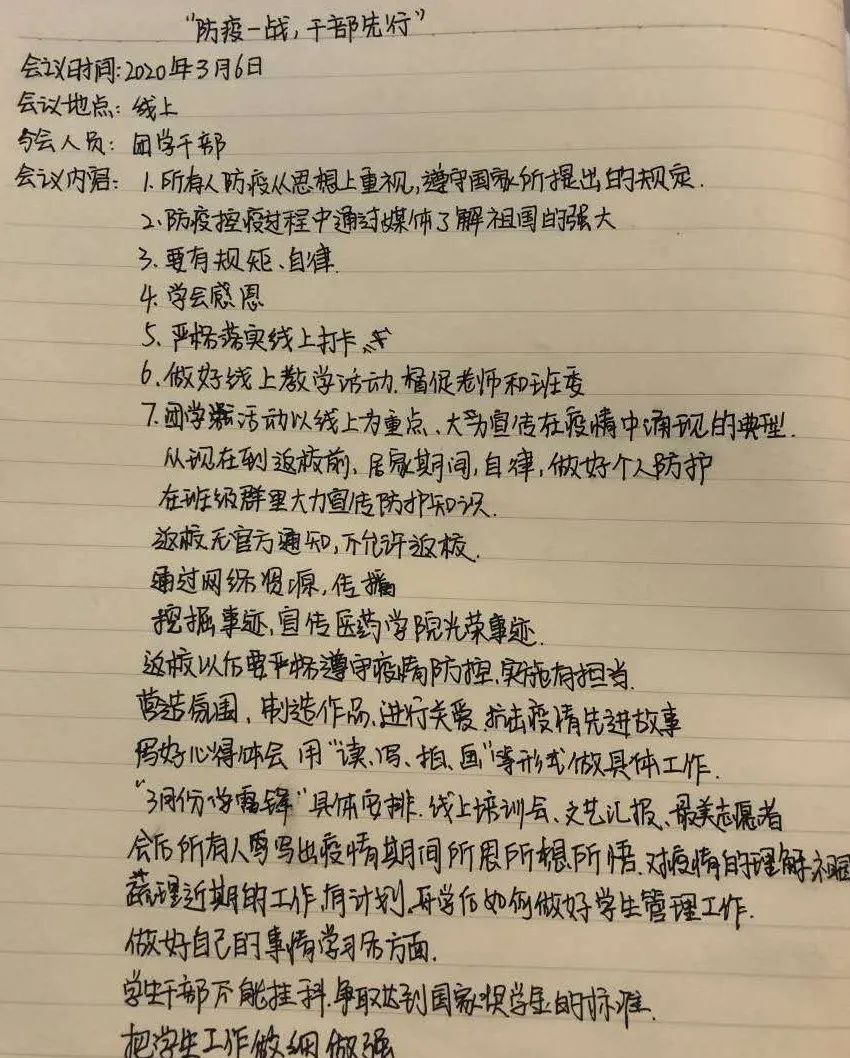 “防疫一战，干部先行”
会议时间：2020年3月6日
会议地点：线上
与会人员：团学干部
会议内容：1.所有人防疫从思想上重视，遵守国家所提出的规定.
2.防疫控疫过程中通过媒体了解祖国的强大
3.要有规矩、自律.
4.学会感恩
5.严格落实线上打卡
6.做好线上教学活动.督促老师和班委
7.团学活动以线上为重点、大力宣传在疫情中涌现的典型.
从现在到返校前，居家期间，自律，做好个人防护
在班级群里大力宣传防护知识.
返校无官方通知，不允许返校.
通过网络资源，传播
挖掘事迹，宣传医药学院光荣事迹.
返校以后要严格遵守疫情防控，实施有担当.
营造氛围，制造作品，进行关爱.抗击疫情先进故事
写好心得体会 用“读、写、拍、画”等形式做具体工作.
“3月份学雷锋”具体安排.线上培训会、文艺汇报、最美志愿者
会后所有人写出疫情期间所思所想所悟.对疫情的理解.祖国
梳理近期的工作，有计划，开学后如何做好学生管理工作.
做好自己的事情学习各方面.
学生干部不能挂科.争取达到国家奖学金的标准.
把学生工作做细做强